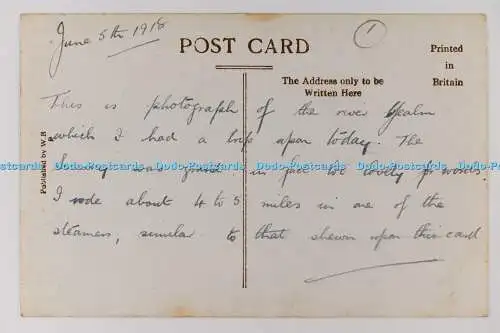 June 5th 1918
1
POST CARD
Printed
in
Britain
The Address only to be
Written Here
Published by W.B
This is photograph of the river Yealm
which I had a trip upon today. The
was grand in fact too lovely for words.
I rode about 4 to 5 miles in one of the
steamers, similar to that shewn upon this card
Dodo-Postcards Dodo-Postcards Dodo-Postcards Dodo-Postcards Dodo-Postcards